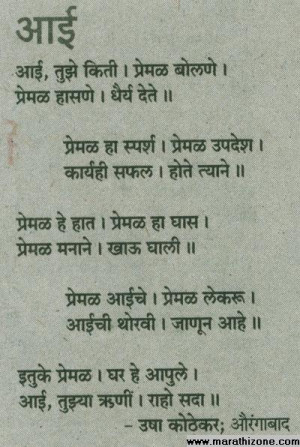 आई
आई, तुझे किती । प्रेमळ बोलणे ।
प्रेमळ हासणे । धैर्य देते ॥
प्रेमळ हा स्पर्श । प्रेमळ उपदेश ।
कार्यही सफल । होते त्याने ॥
प्रेमळ हे हात । प्रेमळ हा घास ।
प्रेमळ मनाने । खाऊ घाली ॥
प्रेमळ आईचे । प्रेमळ लेकरू ।
आईची थोरवी । जाणून आहे ॥
इतुके प्रेमळ । घर हे आपुले ।
आई, तुझ्या ऋणीं । राहो सदा ॥
- उषा कोठेकर; औरंगाबाद
www.marathizone.com